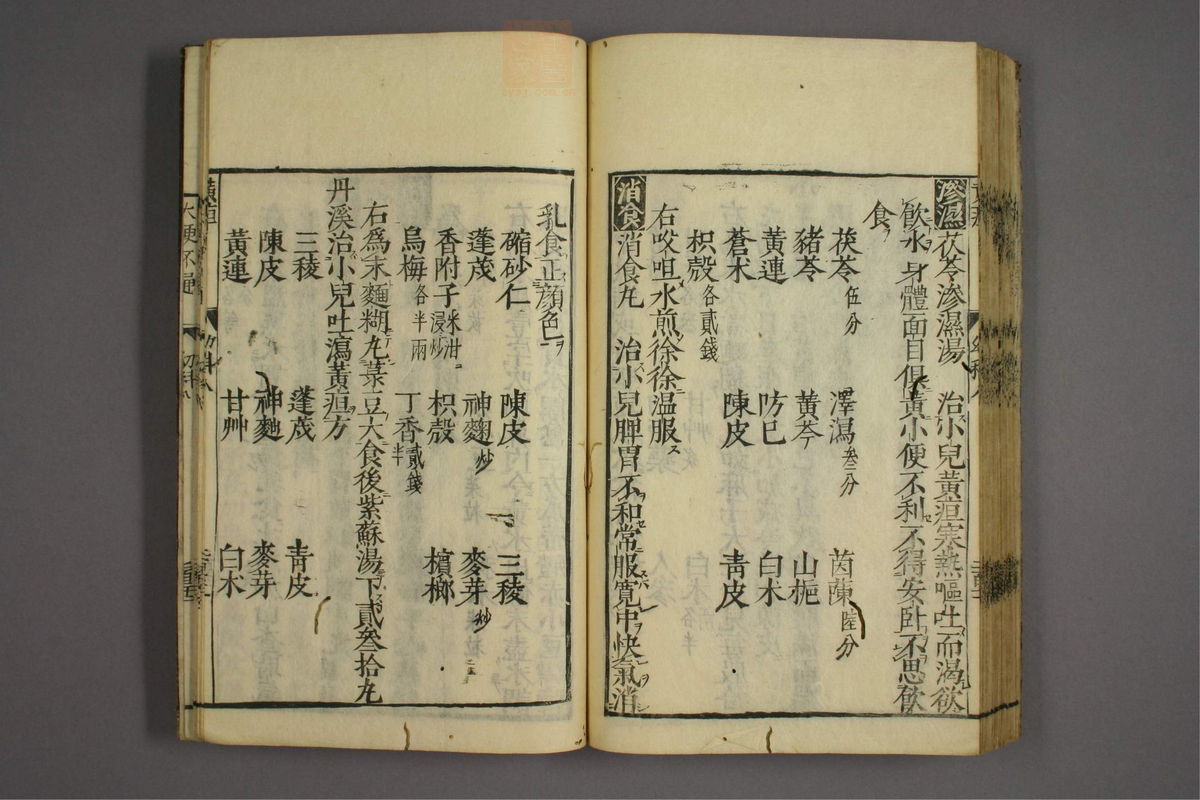 滲濕茯苓滲濕湯　治小兒黃疸寒熱嘔吐而渴欲
飲水身體面目俱黃小便不利不得安臥不思飲
食
茯苓伍分　澤瀉叁分　茵蔯陸分
豬苓　黃芩　山梔
黃連　防已　白朮
蒼朮　陳皮　靑皮
枳殼各貳錢
右㕮咀水煎徐徐温服
消食消食丸　治小兒脾胃不和常服寬中快氣消
乳食正顏色
縮砂仁　陳皮　三稜
蓬茂　神麴炒　麥芽炒
香附子米泔浸炒　枳殼　檳榔
烏梅各半兩　丁香貳錢半
右爲末麵糊丸菉豆大食後紫蘇湯下貳叁拾丸
丹溪治小兒吐瀉黃疸方
三稜　蓬茂　靑皮
陳皮　神麴　麥芽
黃連　甘艸　白朮
黃疸
大便不通